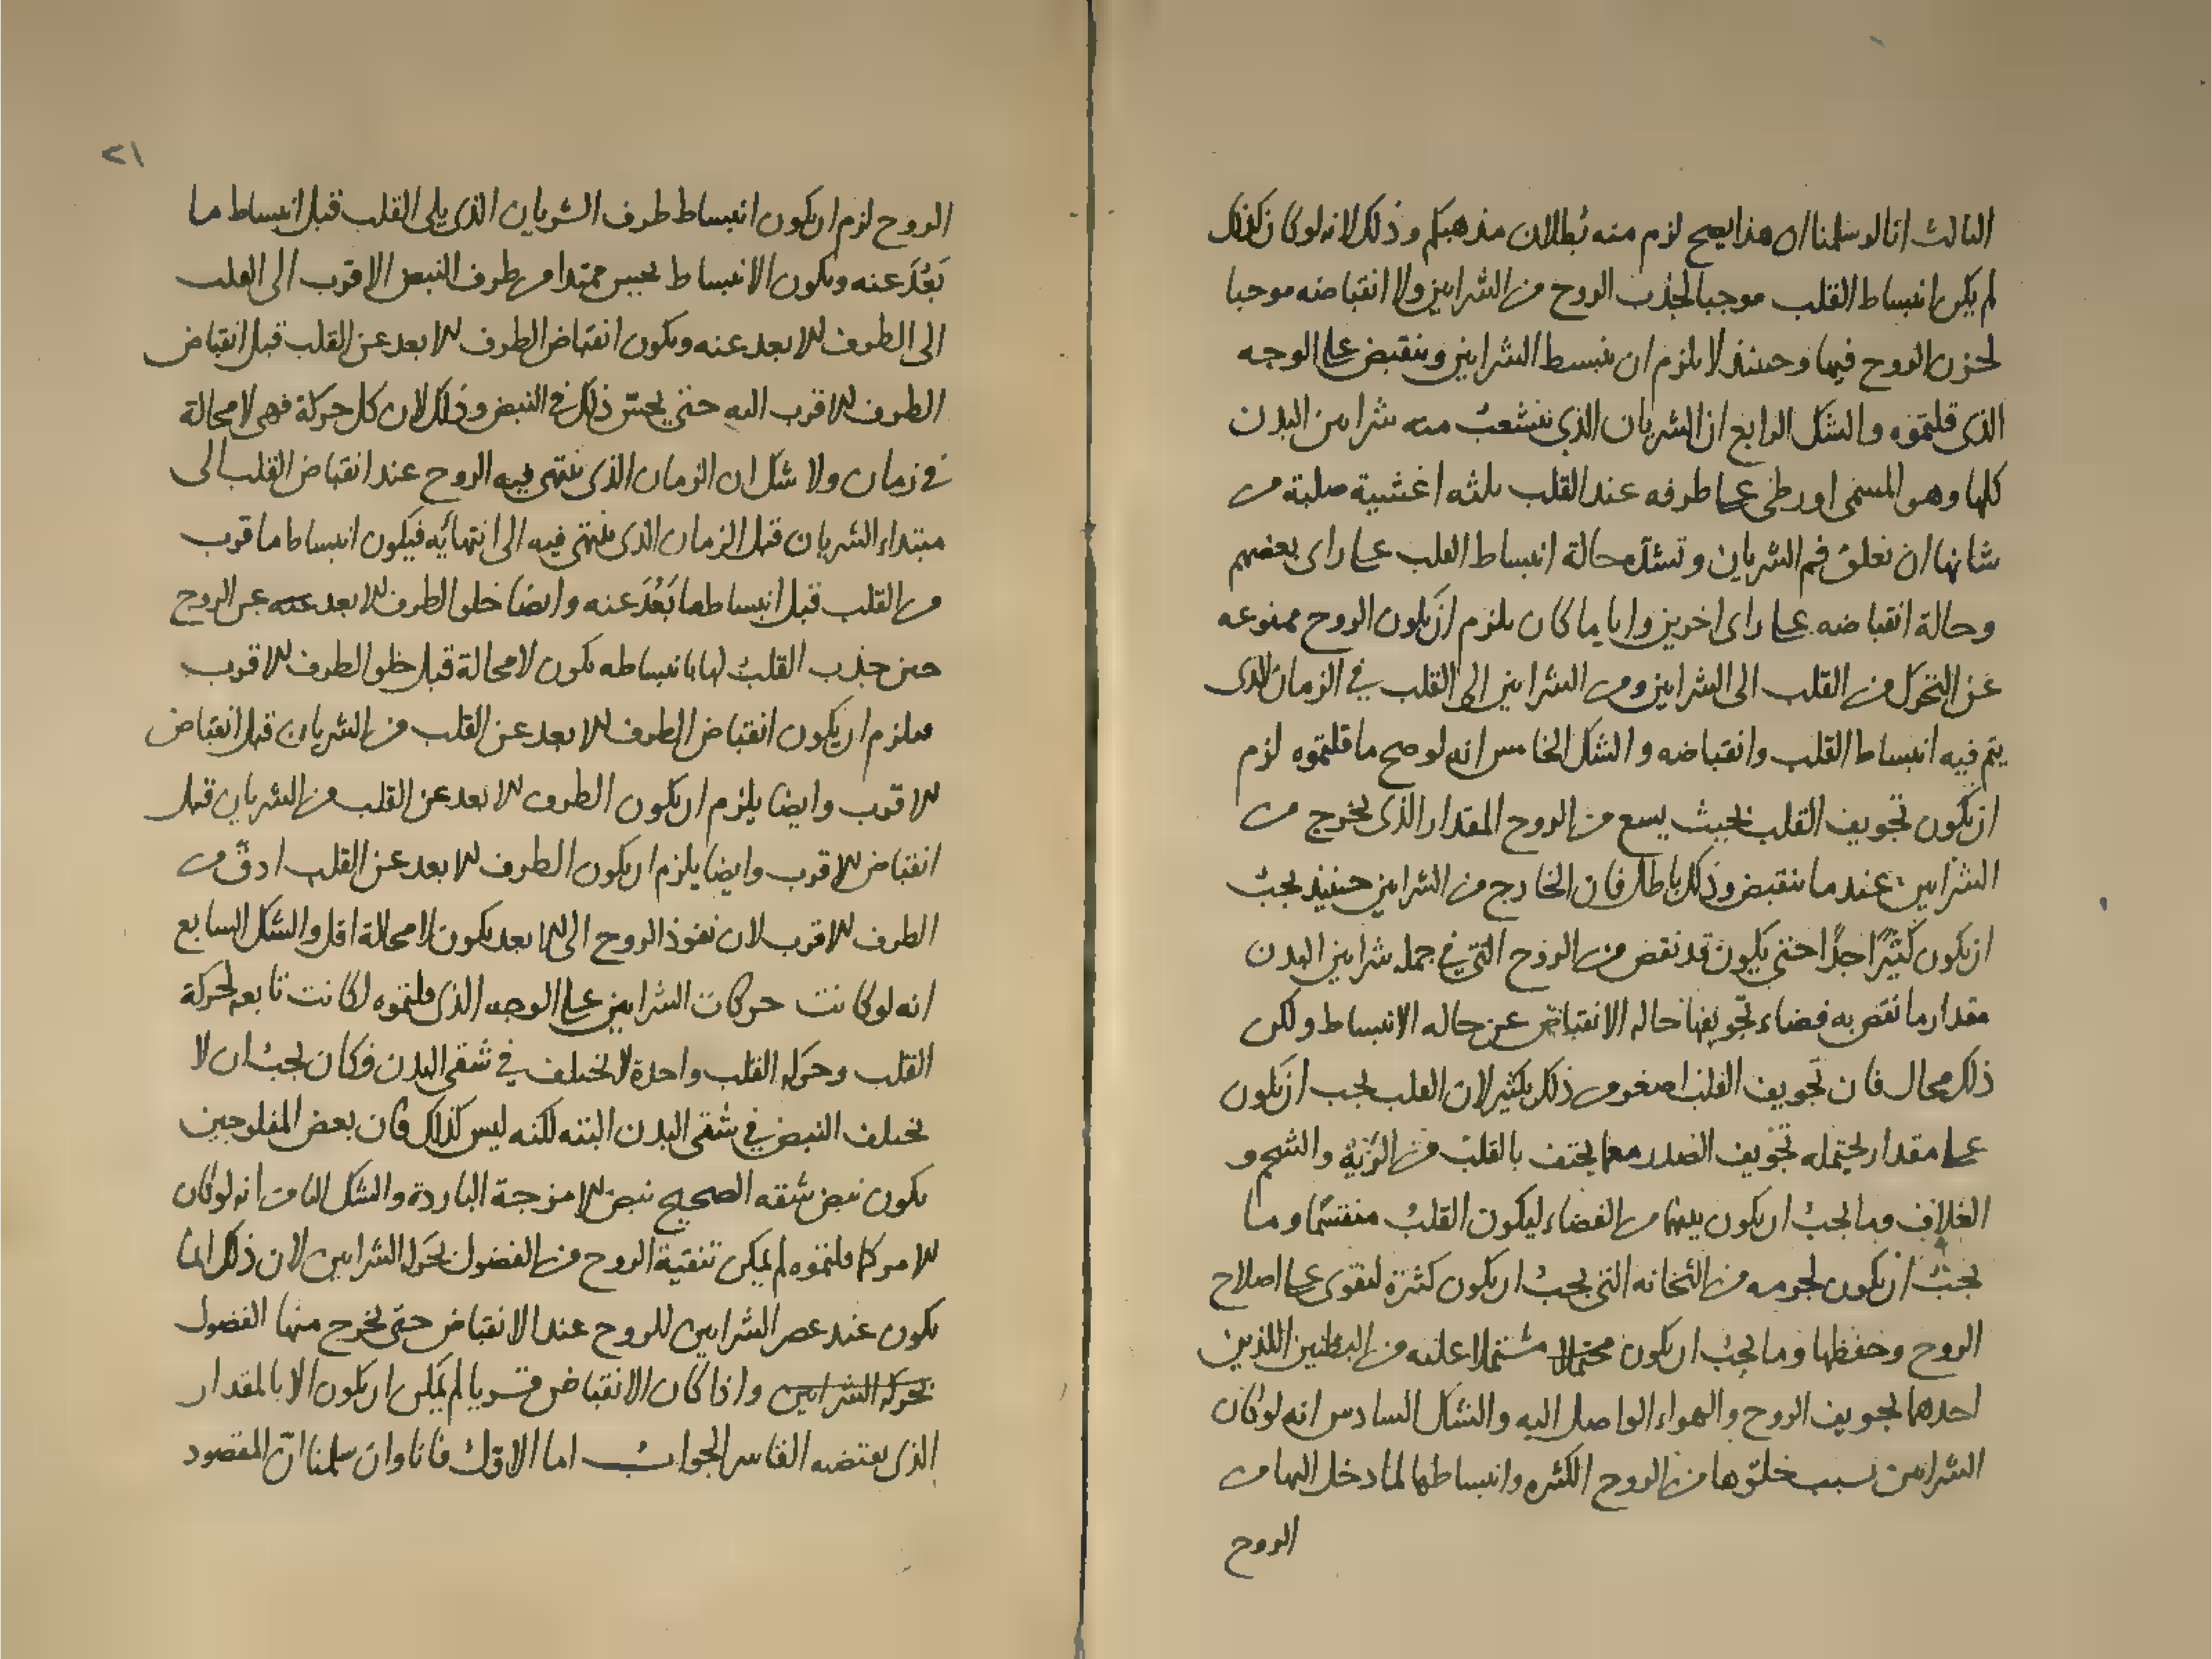 الثالث انا لو سلمنا ان هذا يصح لزم منه بُطلان مذهبكم وذلك لانه لو كان كذلك
لم يكن انبساط القلب موجبا لجذب الروح من الشرايين ولا انقباضه موجبا
لحزن الروح فيها وحينئذ لا يلزم ان ينبسط الشرايين وينقبض على الوجه
الذى قلتموه والشك الرابع ان الشريان الذى ينشعبُ منه شرايين البدن
كلها وهو المسمى اورطى على طرفه عند القلب ثلثه اغشيية صلبة من
شانها ان تغلق فم الشريان وتسُدّه حالة انبساط القلب على راى بعضهم
وحالة انقباضه على راى اخرين وايا ما كان يلزم ان يكون الروح ممنوعه
عن التحرك من القلب الى الشرايين ومن الشرايين الى القلب في الزمان الذى
يتم فيه انبساط القلب وانقباضه والشك الخامس انه لو صح ما قلتموه لزم
ان يكون تجويف القلب بحيث يسع من الروح المقدار الذى يخرج من
الشرايين عندما ينقبض وذلك باطل فان الخارج من الشرايين حينئذ يجبُ
ان يكون كثيرًا جدًا حتى يكون قد نقص من الروح التى في جمله شرايين البدن
مقدار ما نقص به فضاء تجويفها حاله الانقباض عن حاله الانبساط ولكن
ذلك محال فان تجويف القلب اصغر من ذلك بكثير لان القلب يجب ان يكون
على مقدار يحتمله تجويف الصدر مع ما يحتف بالقلب من الرّئة والشحم و
الغلاف وما يجبُ ان يكون بينهما من الفضاء ليكون القلبُ متنفسًا وما
يجبُ ان يكون لجرمه من الثخانه التى يجبُ ان يكون كثيرة ليقوى على اصلاح
الروح وحفظها وما يجب ان يكون محتملا مشتملا عليه من البطنين اللذين
احدهما تجويف الروح والهواء الواصل اليه والشك السادس انه لو كان
الشرايين بسبب خلوّها من الروح الكثيره وانبساطها لما دخل اليها من
الروح
٢١
الروح لزم ان يكون انبساط طرف الشريان الذى يلى القلب قبل انبساط ما
بَعُدَ عنه ويكون الانبساط يحس ممتدا من طرف النبض الاقرب الى القلب
الى الطرف الابعد عنه ويكون انقباض الطرف الابعد عن القلب قبل انقباض
الطرف الاقرب اليه حتى يحسّ ذلك في النبض وذلك لان كل حركة فهى لا محالة
في زمان ولا شك ان الزمان الذى ينتهى فيه الروح عند انقباض القلب الى
مبتداء الشريان قبل الزمان الذى ينتهى فيه الى انتهائيه فيكون انبساط ما قرب
من القلب قبل انبساط ما بَعُدَ عنه وايضا خلو الطرف الابعد عنه عن الروح
حين جذب القلبُ لها بانبساطه يكون لا محالة قبل خلو الطرف الاقرب
فيلزم ان يكون انقباض الطرف الابعد عن القلب من الشريان قبل انقباض
الاقرب وايضا يلزم ان يكون الطرف الابعد عن القلب من الشريان قبل
انقباض الاقرب وايضا يلزم ان يكون الطرف الابعد عن القلب ادقّ من
الطرف الاقرب لان نفوذ الروح الى الابعد يكون لا محالة اقل والشك السابع
انه لو كانت حركات الشرايين على الوجه الذى قلتموه لكانت تابعه لحركة
القلب وحركه القلب واحدة لا تختلف في شقى البدن فكان يجبُ ان لا
يختلف النبض في شقى البدن البته لكنه ليس كذلك فان بعض المفلوجين
يكون نبض شقه الصحيح نبض الامزجة الباردة والشك الثامن انه لو كان
الامر كما قلتموه لم يمكن تنقية الروح من الفضول بحركه الشرايين لان ذلك انما
يكون عند عصر الشرايين للروح عند الانقباض حتى يخرج منها الفضول
بحركه الشرايين واذا كان الانقباض قسريا لم يمكن ان يكون الا بالمقدار
الذى يقتضيه القاسر الجواب اما الاول فانا وان سلمنا انّ المقصود